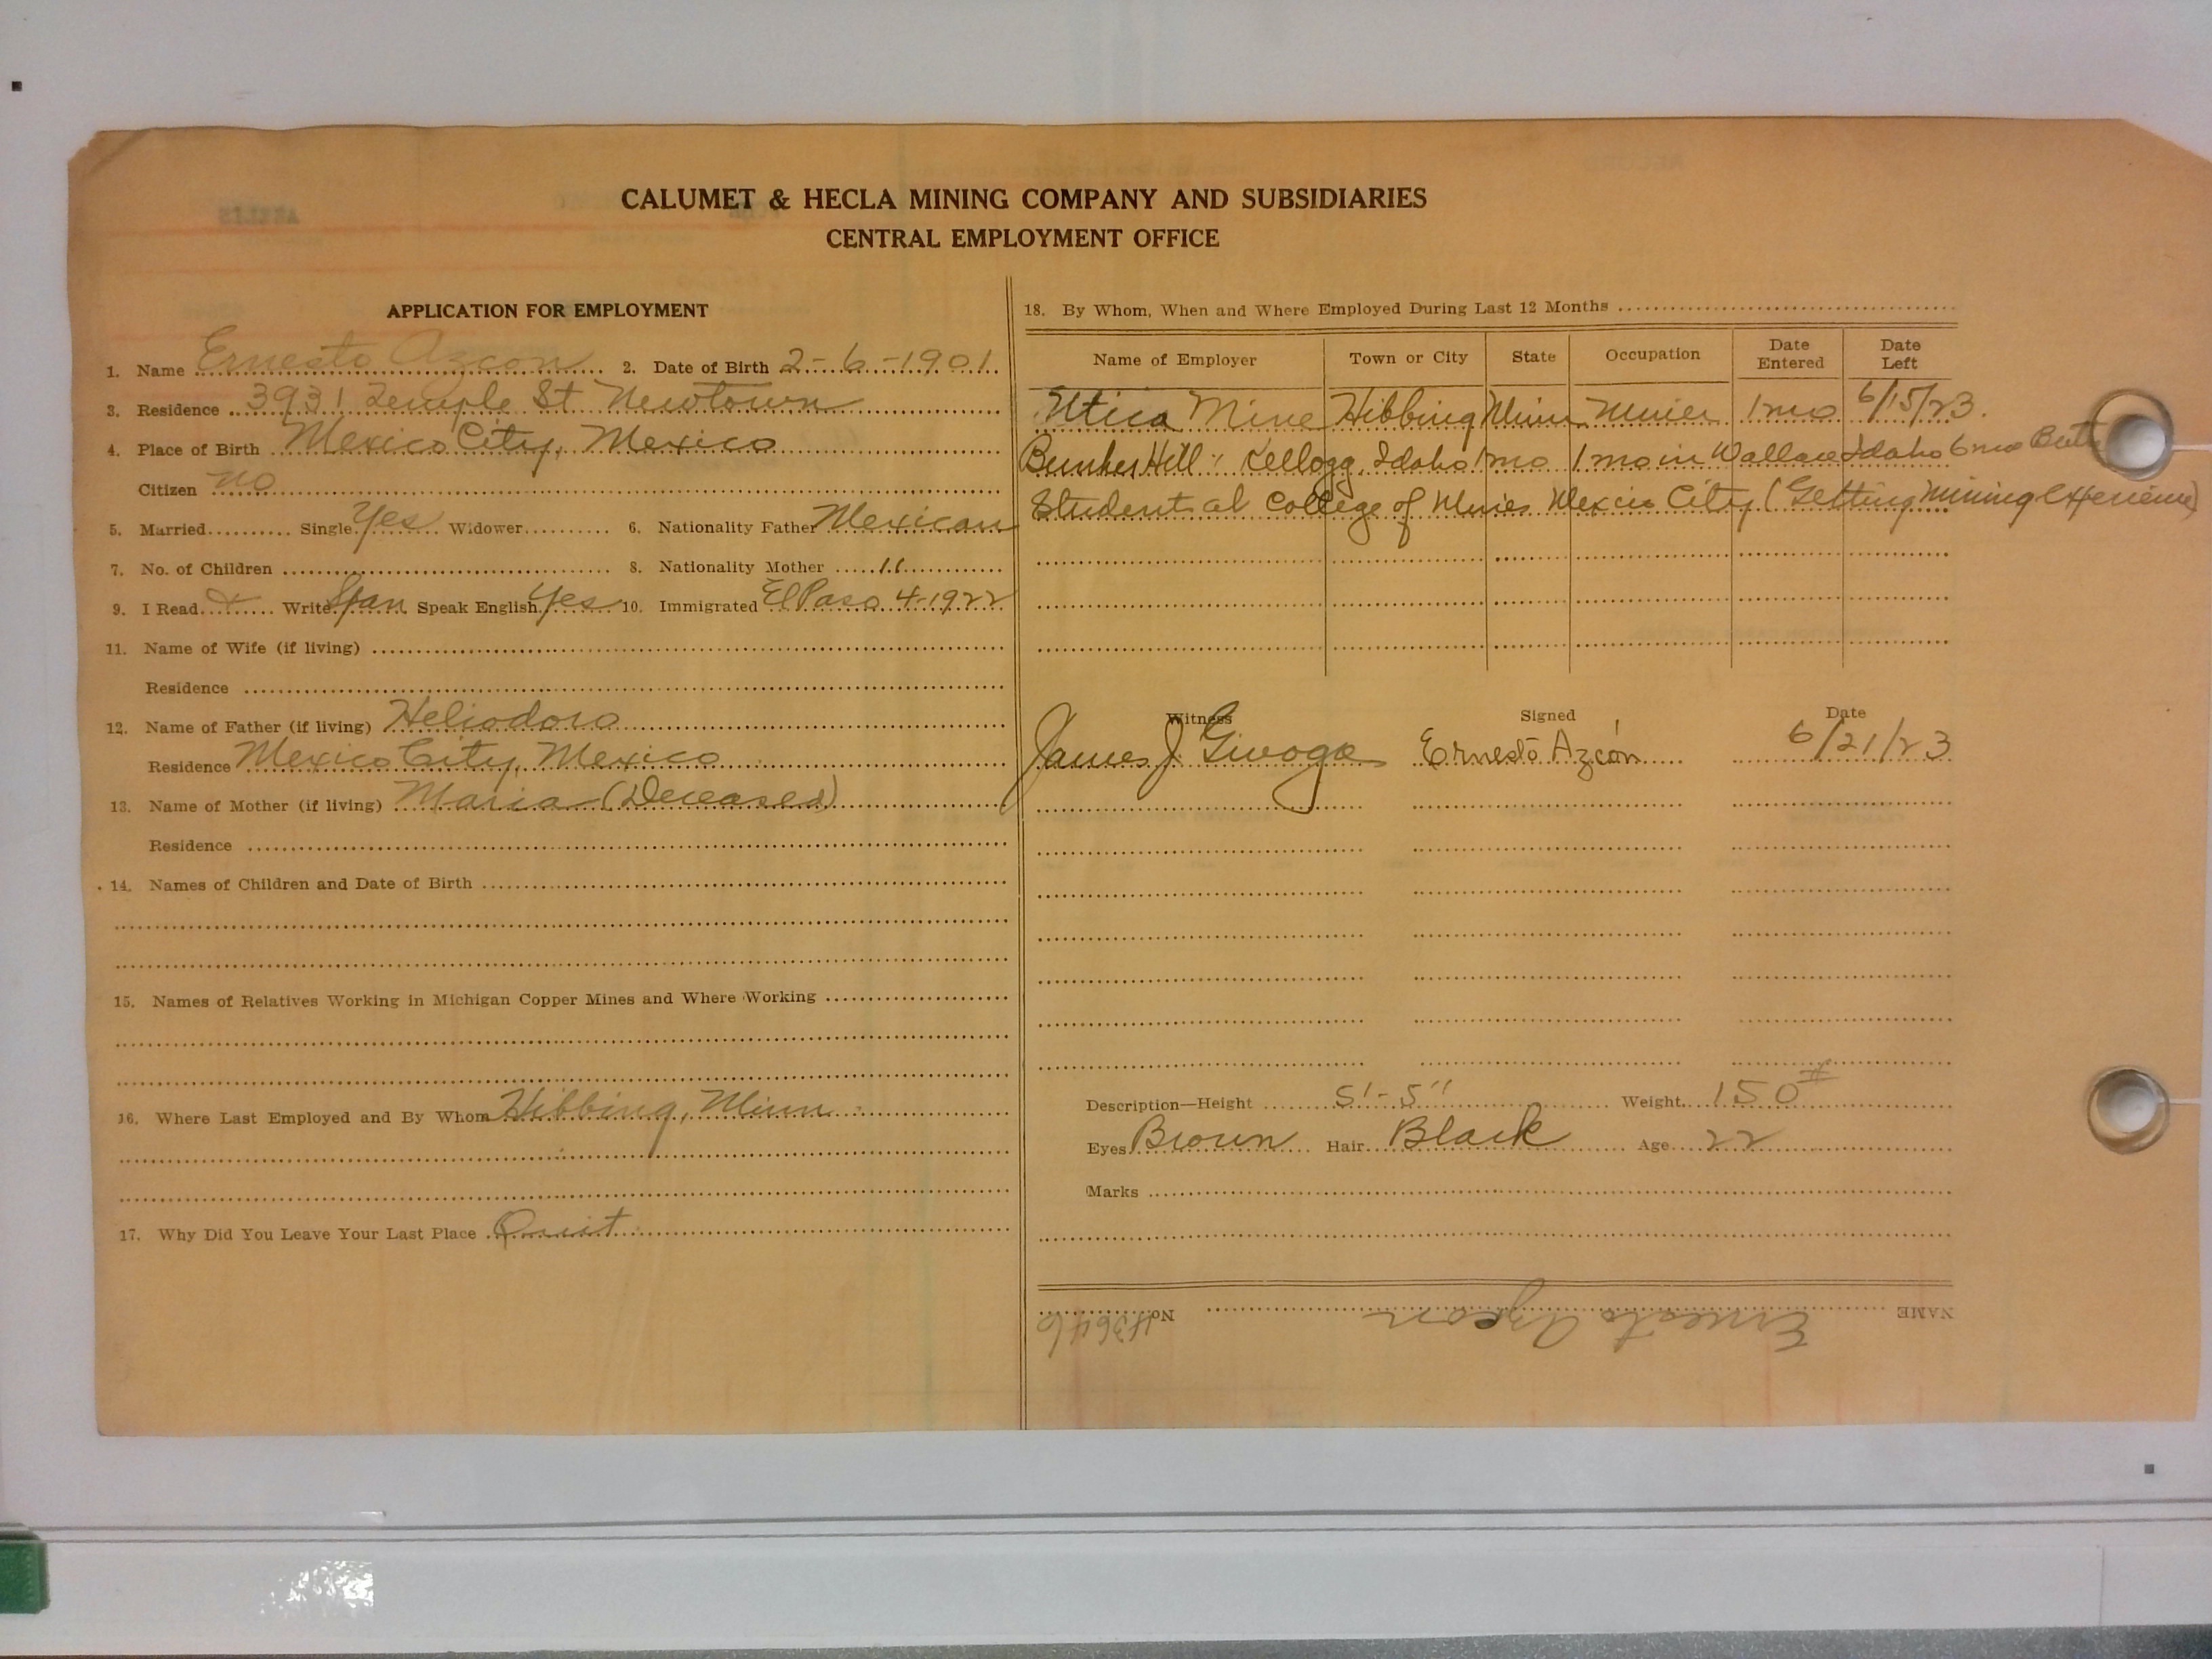 CALUMET & HECLA MINING COMPANY AND SUBSIDIARIES
CENTRAL EMPLOYMENT OFFICE
APPLICATION FOR EMPLOYMENT
1. Name Ernesto Azcon 2. Date of Birth 2-6-1901
3. Residence 3931 Temple St Newtown
4. Place of Birth Mexico City, Mexico
Citizen No
5. Married Single Yes Widower 6. Nationality Father Mexican
7. No. of Children 8. Nationality Mother "
9. I Read Write Span Speak English Yes 10. Immigrated El Paso 4-1922
11. Name of Wife (if living)
Residence
12. Name of Father (if living) Heliodoro
Residence Mexico City, Mexico
13. Name of Mother (if living) Maria (Deceased)
Residence
14. Names of Children and Date of Birth
15. Names of Relatives Working in Michigan Copper Mines and Where Working
16. Where Last Employed and By Whom Hibbing, Minn
17. Why Did You Leave Your Last Place Quit
18. By Whom, When and Where Employed During Last 12 Months
Name of Employer Town or City State Occupation Date Entered Date Left
Utica Mine Hibbing Minn Miner 1 mo 6/15/23.
Bunker Hill Kellogg, Idaho 1 mo 1 mo in Wallace Idaho 6 mo
Student at College of Mines Mexico City (Getting Mining experience)
Witness Signed Date
James J. Ernesto Azcón 6/21/23
Description—Height 5'-5" Weight 150#
Eyes Brown Hair Black Age 22
Marks
NAME Ernesto Azcon No. 43646